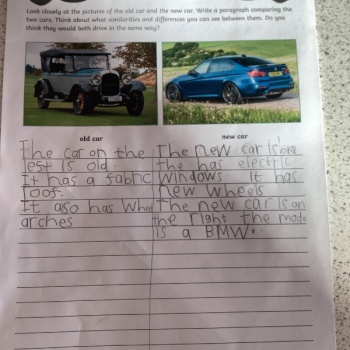 Look closely at the pictures of the old car and the new car. Write a paragraph comparing the
two cars. Think about what similarities and differences you can see between them. Do you
think they would both drive in the same way?
old car
new car
The car on the
lest is old
It has a fabric
roof.
It aso has Whee
arches
The new car is
the has electric
windows It has
new wheels
The new car is on
the right the mode
is a BMW.